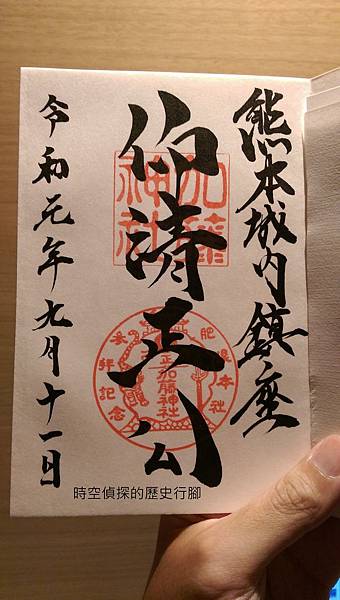 熊本城内鎮座
仰清正公
加藤
神社
加藤神社
参拝記念
令和元年九月十一日
時空偵探的歷史行腳